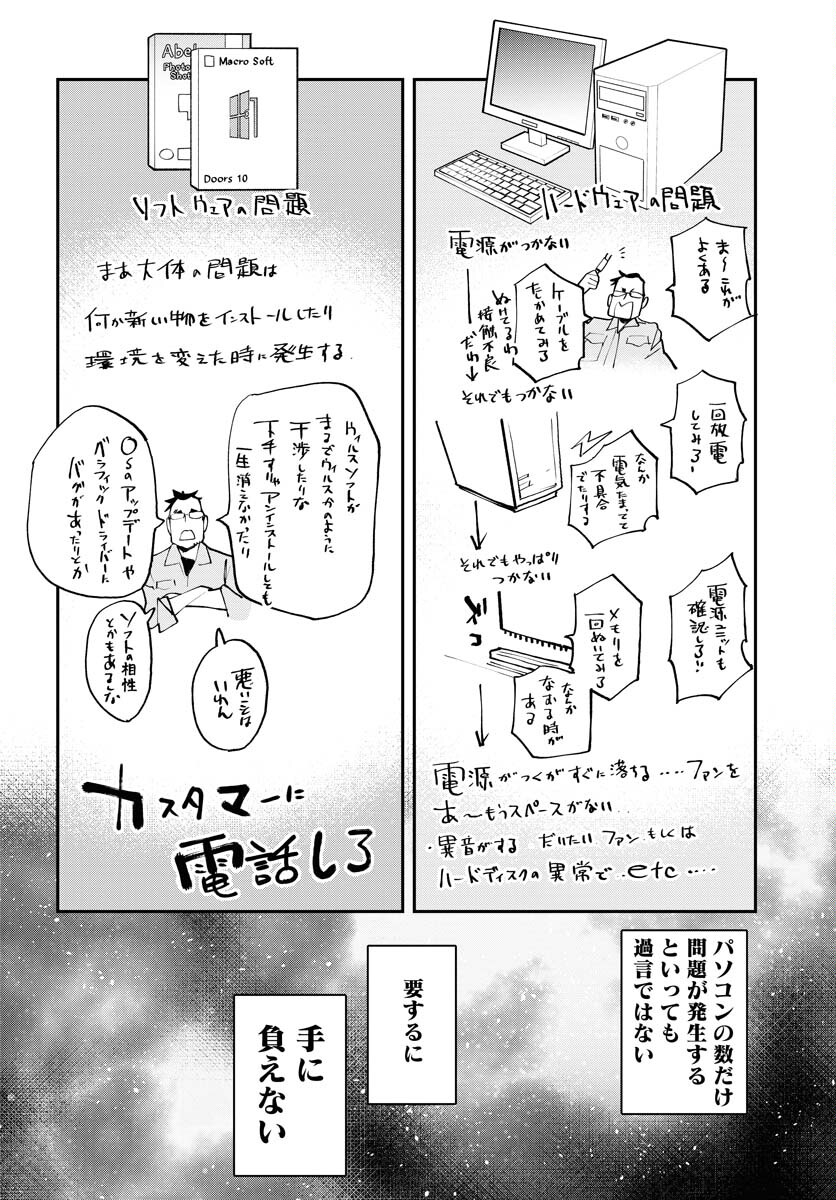 ハードウェアの問題
電源がつかない
ま〜これが
よくある
ケーブルを
たしかめてみろ
ぬけてるわ
接触不良
だわ
それでもつかない
一回放電
してみろ!
なんか
電気たまってて
不具合
でたりする
それでもやっぱり
つかない
電源ユニットも
確認しろ!!
メモリを
一回ぬいてみろ
なんか
なおる時が
ある
電源がつくがすぐに落ちる‥‥ファンを
あ〜もうスペースがない‥
・異音がする だいたい ファン もしくは
ハードディスクの異常で ‥etc‥‥
Abel
Photo
Shot
Macro Soft
Doors 10
ソフトウェアの問題
まあ大体の問題は
何か新しい物をインストールしたり
環境を変えた時に発生する.
ウィルスソフトが
まるでウィルスかのように
干渉したりな
下手すりゃアンインストールしても
一生消えなかったり
OSのアップデートや
グラフィックドライバーに
バグがあったりとか
ソフトの相性
とかもあるしな
悪いことは
いわん
カスタマーに
電話しろ
パソコンの数だけ
問題が発生する
といっても
過言ではない
要するに
手に
負えない